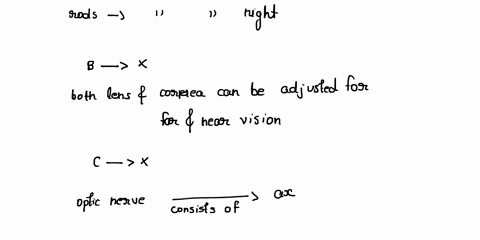 rods → " " right
B → X
both lens & cornea can be adjusted for
far & near vision
C → X
optic nerve consists of → ax